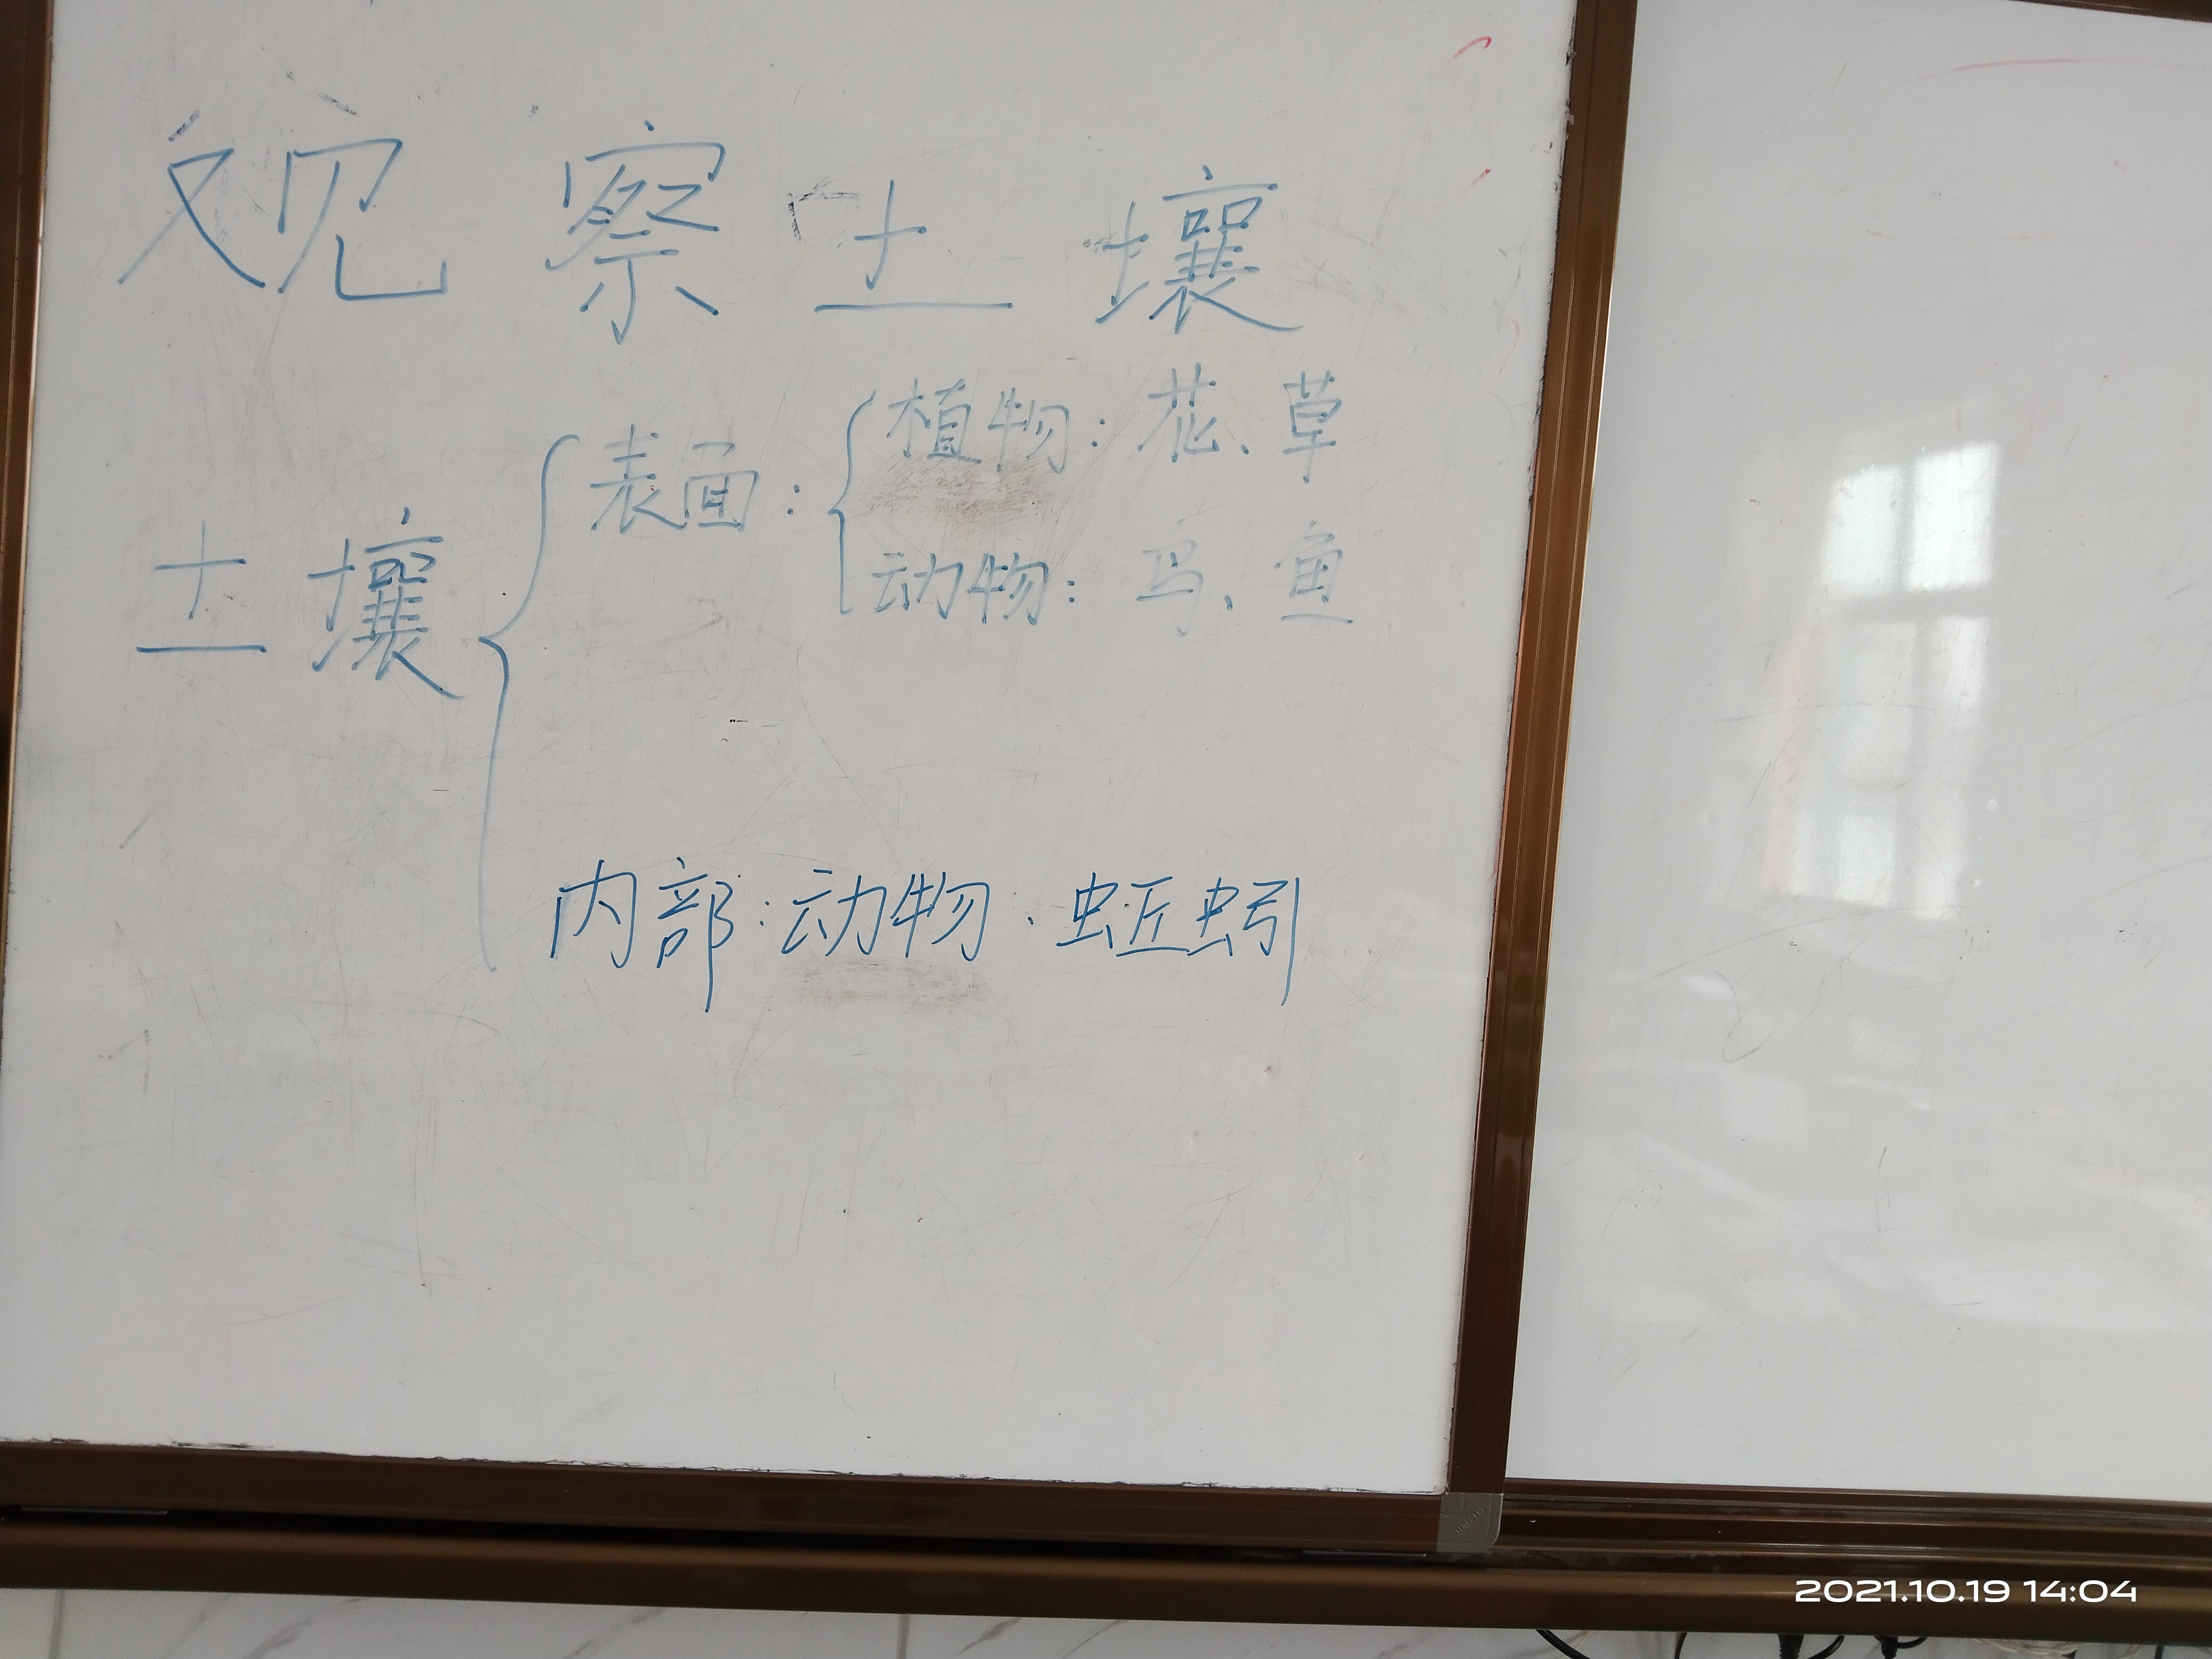 观察土壤
表面:
植物:花、草
动物:鸟、鱼
土壤
内部:动物、蚯蚓
2021.10.19 14:04